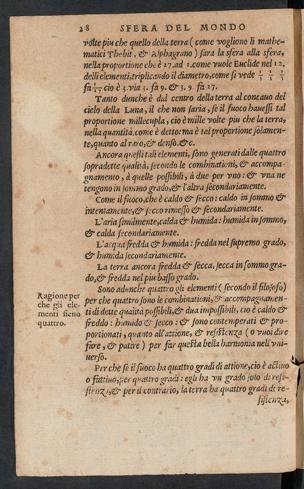 28 SFERA DEL MONDO
volte piu che quello della terra (come vogliono li mathe-
matici Thebit, & Alphagrano) sara la sfera alla sfera,
nella proportione che è 27. ad 1. come vuole Euclide nel 12.
delli elementi, triplicando il diametro, come si vede
fa 27 cio è 3. via 3. fa 9. & 3. 9. fa 27.
Tanto dunche è dal centro della terra al concauo del
cielo della Luna, il che non saria, se il fuoco hauessi tal
proportione millecupla, cio è mille volte piu che la terra,
nella quantità. come è detto: ma è tal proportione solamen-
te, quanto al raro, & denso. &c.
Ancora questi tali elementi, sono generati dalle quattro
sopradette qualità, secondo le combinationi, & accompa-
gnamento, à quelle possibili, à due per vno: & vna ne
tengono in sommo grado, & l'altra secondariamente.
Come il fuoco, che è caldo & secco: caldo in sommo &
intentamente, & secco rimesso & secondariamente.
L'aria similmente, calda & humida: humida in sommo,
& calda secondariamente.
L'acqua fredda & humida: fredda nel supremo grado,
& humida secondariamente.
La terra ancora fredda & secca, secca in sommo gra-
do, & fredda nel piu basso grado.
Sono adunche quattro gli elementi (secondo il filosofo)
per che quattro sono le combinationi, & accompagnamen-
ti di dette qualità possibili, & due impossibili, cio è caldo &
freddo: humido & secco: & sono contemperati & pro-
portionati, quanto all'attione, & resistenza (o vuoi dire
fare, & patire) per far questa bella harmonia nell'vni-
uerso.
Ragione per
che gli ele-
menti sieno
quattro.
Per che se il fuoco ha quattro gradi di attione, cio è actiuo
o fattiuo, per quattro gradi: egli ha vn grado solo di resi-
stenza, & per il contrario, la terra ha quattro gradi di re-
sistenza,